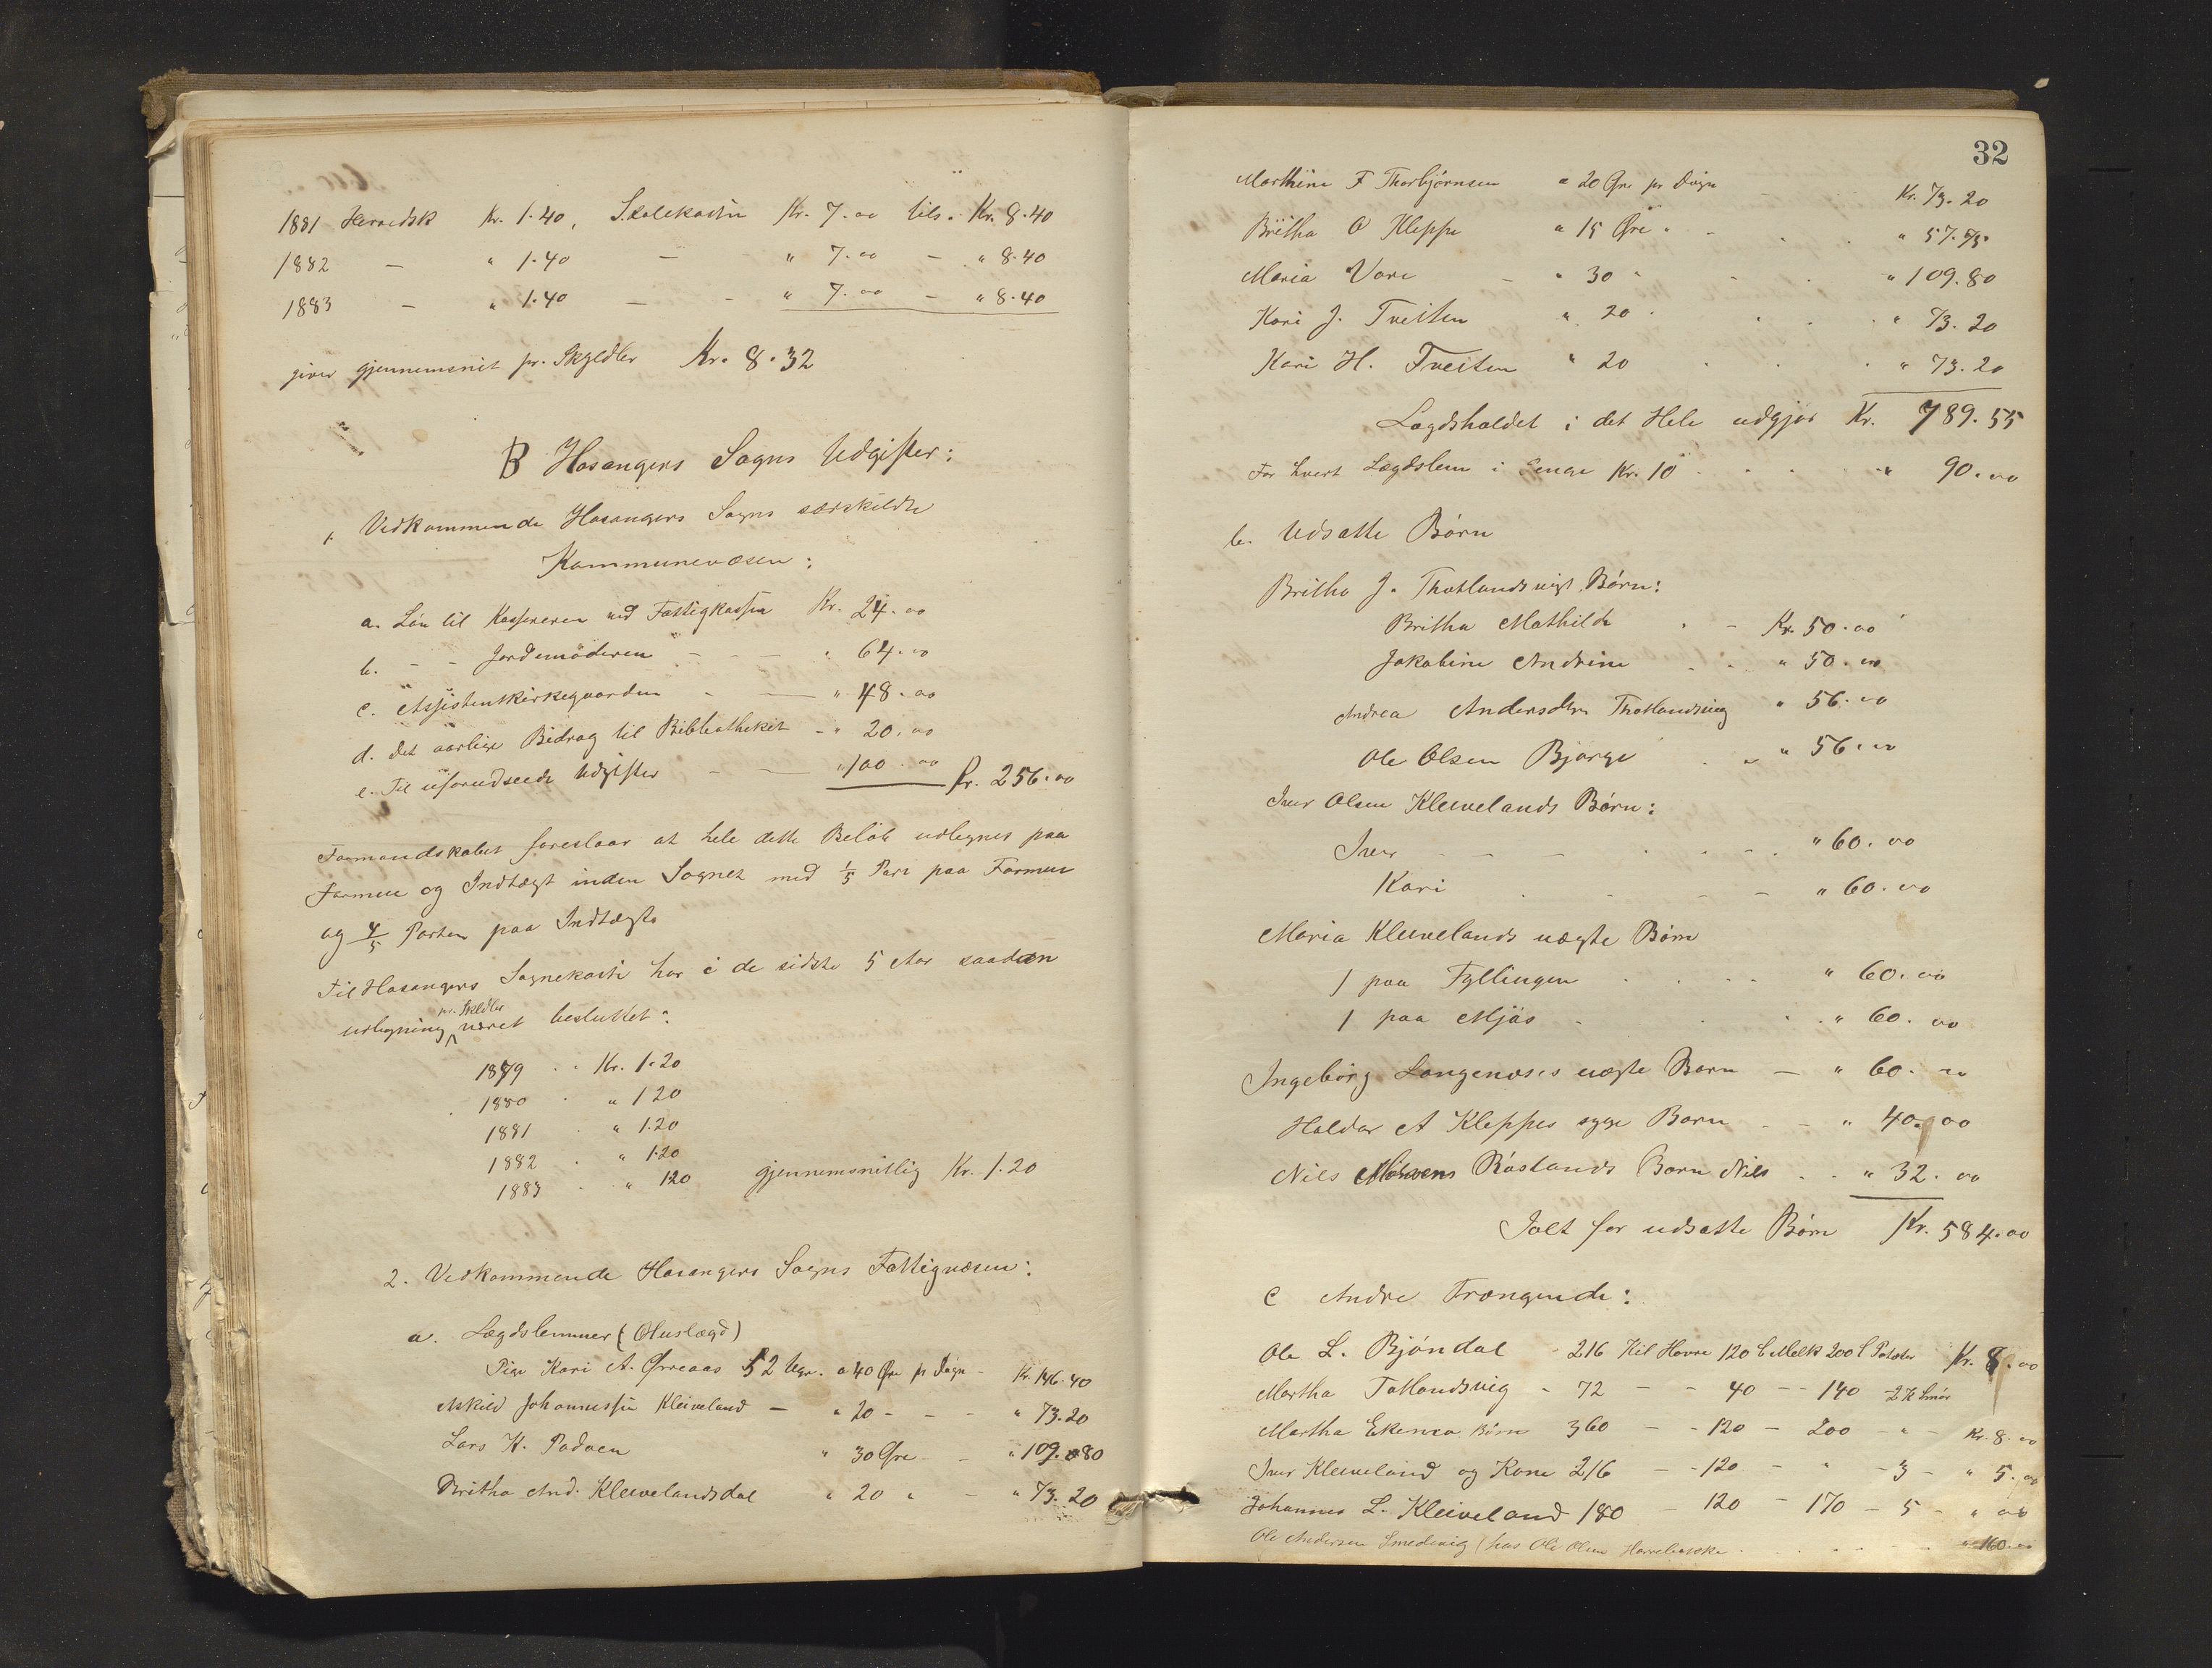 1881 Herredsk Kr. 1.40, Skolekassen Kr. 7.00 tils. Kr. 8.40
1882 — " 1.40 — " 7.00 — " 8.40
1883 — " 1.40 — - " 7.00 — " 8.40
giver gjennemsnit pr. Skyldler Kr. 8.32
B Hosangers Sogns Udgifter:
1, Vedkommende Hosangers Sogns særskildte
Kommunevæsen:
a. Løn til Kassereren ved Fattigkassen Kr. 24.00
b. - - Jordemoderen - - - " 64.00
c. Assistentskirkegaarden - — " 48.00
d. Det aarlige Bidrag til Bibliotheket - " 20.00
e. Til uforudseede Udgifter - — " 100.00 Kr. 256.00
Formandskabet foreslaar at hele dette Beløb udlignes paa
Formue og Indtægt inden Sognet med 1/5 Part paa Formue
og 4/5 Parten paa Indtægt.
Til Hosangers Sognekasse har i de sidste 5 Aar saadan
pr. Skldlr
udligning været besluttet:
1879 . . Kr. 1.20
1880 . " 120
1881 . " 1.20
1882 . " 1.20
1883 . " 120 gjennemsnitlig Kr. 1.20
2. Vedkommende Hosangers Sogns Fattigvæsen:
a. Lægdslemmer (Huslægd)
Pige Kari A. Ørreaas 52 Uger. a 40 Øre pr Døgn - Kr. 146.40
Askild Johannessen Kleiveland — " 20 - - - " 73.20
Lars K. " 30 Øre - — " 109.80
Britha And. Kleivelandsdal " 20 " — " 73.20
32
Marthina F Thorbjørnsen a 20 Øre pr Døgn Kr. 73.20
Britha O Kleppe " 15 Øre " - . . " 57.
Maria Vare - " 30 " - . " 109.80
Kari J. Tveiten " 20 . . . . " 73.20
Kari H. Tveiten " 20 . . . " 73.20
Lægdsholdet i det Hele udgjør Kr. 789.55
For hvert Lægdslem i Senge Kr. 10 . . . . " 90.00
b. Udsatte Børn
Britha J. Thotlandsvigs Børn:
Britha Mathilde . - Kr. 50.00
Jakobine Andrine . . " 50.00
Andrea Andersdtr. Thotlandsvig " 56.00
Ole Olsen Bjørge . . " 56.00
Iver Olsen Kleivelands Børn:
Iver — — — . . - . " 60.00
Kari . . - - — " 60.00
Maria Kleivelands uægte Børn
1 paa Fyllingen . . . . " 60.00
1 paa Mjøs . . . . " 60.00
Ingeborg Langenæses uægte Barn — " 60.00
Haldor A Kleppes syge Barn . - " 40.00
Nils Røslands Barn Nils . . " 32.00
Ialt for udsatte Børn Kr. 584.00
c Andre Trængende:
Ole L. Bjøndal - 216 Kil Havre 120 L Melk 200 L Poteter Kr. 8.00
Martha Totlandsvig - 72 — - 40 - - 140 - 2 K Smør
Martha Børn 360 — - 120 — 200 - " - Kr. 8.00
Iver Kleiveland og Kone 216 — - 120 — " - 3 - " 5.00
Johannes L. Kleiveland 180 — 120 - 170 - 5 - " 00
Ole Andersen Smedevig (hos Ole Olsen . . . . - - " 160.00